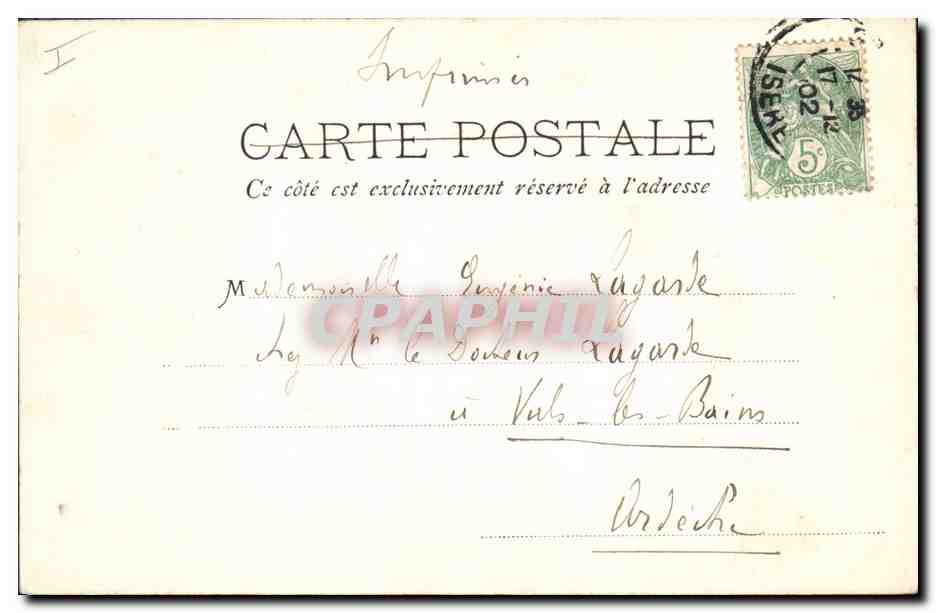 I
Imprimés
CARTE POSTALE
Ce côté est exclusivement réservé à l'adresse
17 -12
02
ISERE
5c
POSTES
Mademoiselle Eugénie Lagarde
CPAPHIL
chez Mr le Docteur Lagarde
à Vals-les-Bains
Ardèche